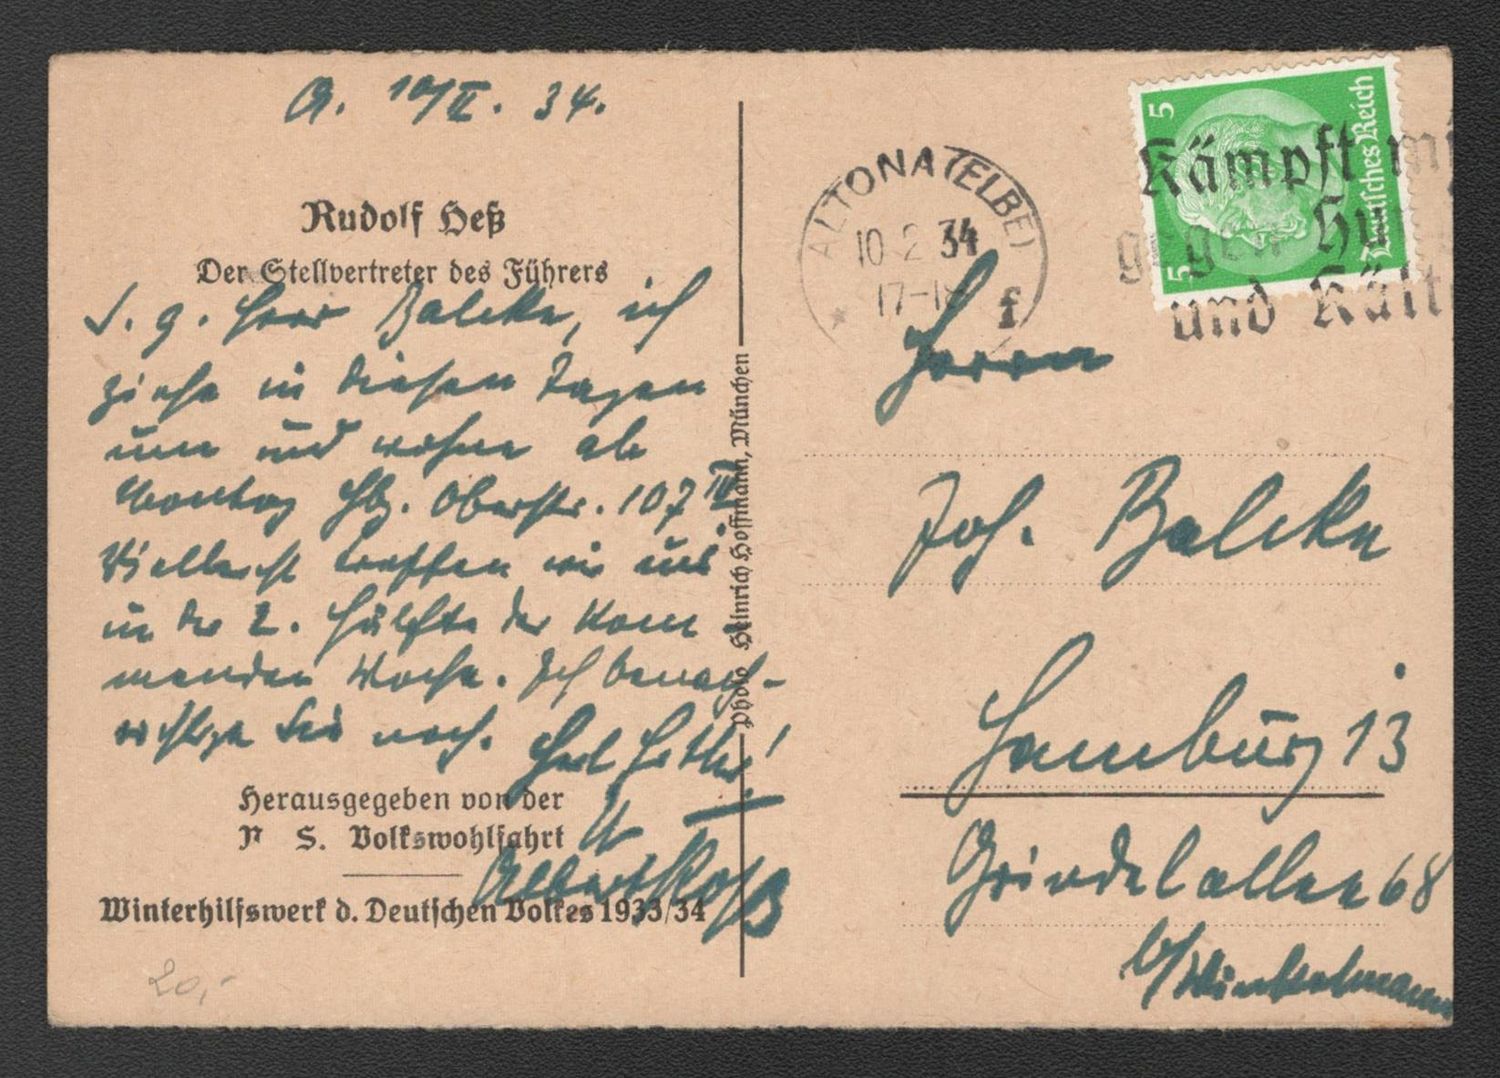 A. 10/II. 34.
Rudolf Heß
Der Stellvertreter des Führers
S. g. Herr Balcke, ich
ziehe in diesen Tagen
um und wohne ab
Montag Hbg. Oberstr. 107 IV
Vielleicht treffen wir uns
in der 2. Hälfte der kom
menden Woche. Ich benach-
richtige Sie noch. Heil Hitler!
Herausgegeben von der
N. S. Volkswohlfahrt
Albert Roß
Winterhilfswerk d. Deutschen Volkes 1933/34
20,-
Photo Heinrich Hoffmann, München
ALTONA (ELBE)
10 2 34
17-18
f
5
5
Deutsches Reich
Kämpft mi
gegen Hu
und Kält
Herrn
Joh. Balcke
Hamburg 13
Grindelallee 68
b/Winkelmann